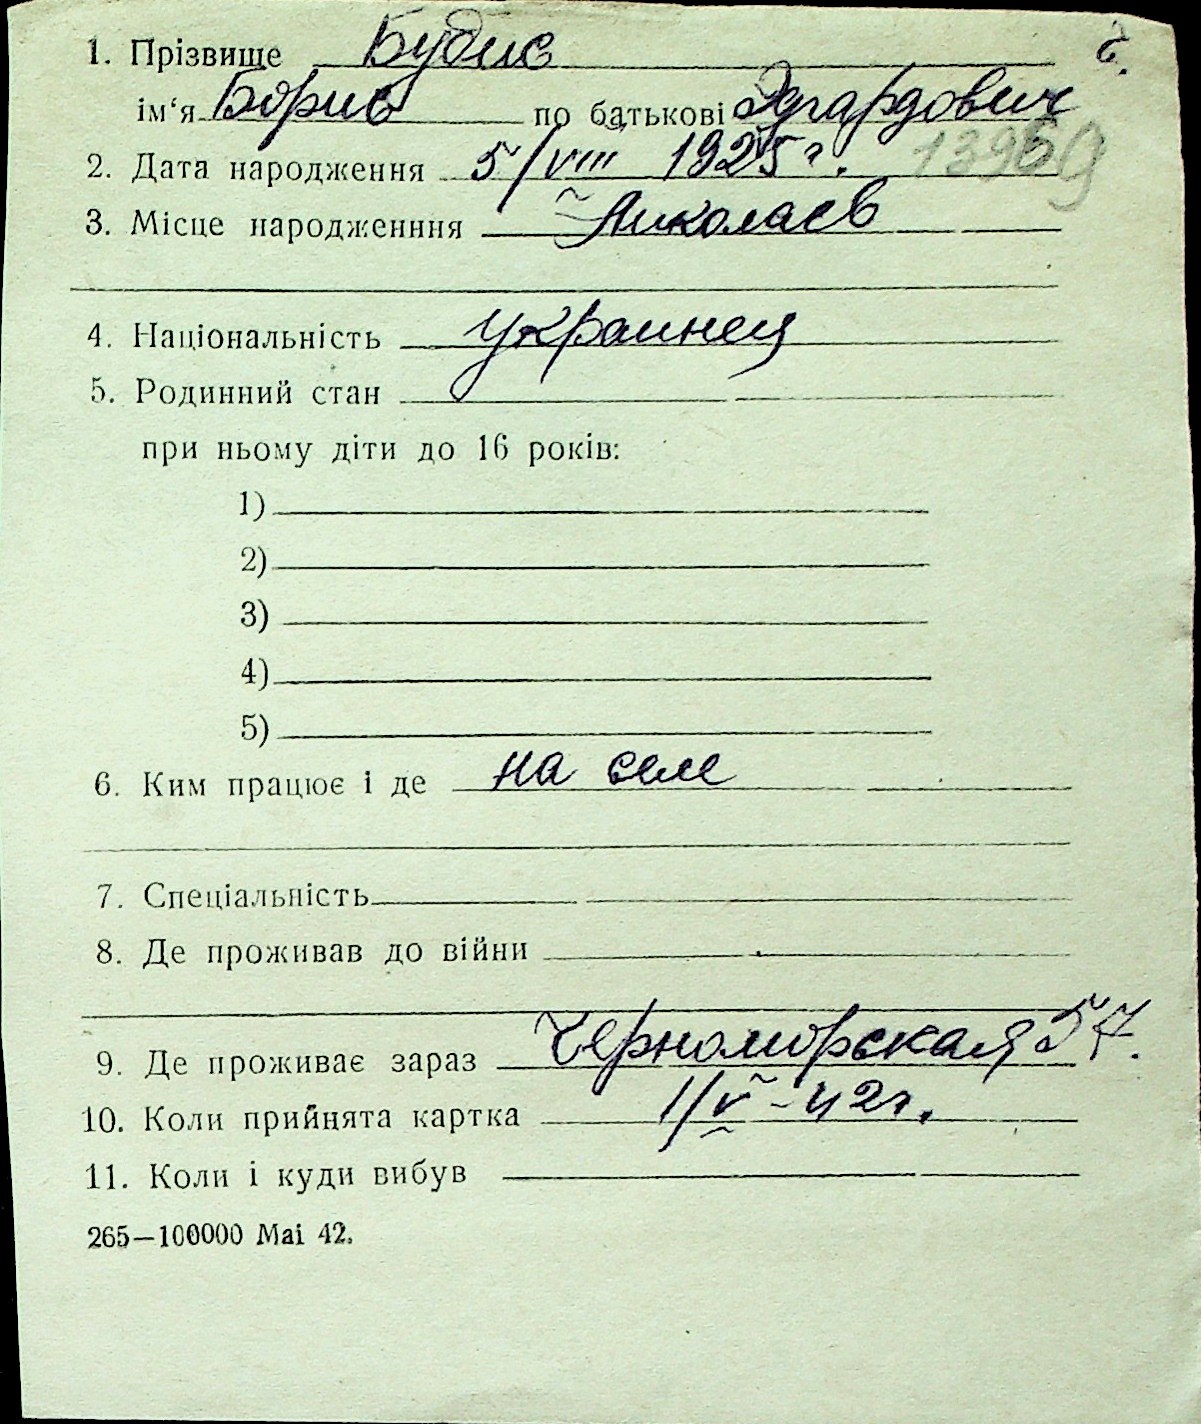 1. Прізвище Будис
ім‘я Борис по батькові Эдгардович
2. Дата народження 5/VIII 1925 г. 13969
3. Місце народженння Николаев
4. Національність украинец
5. Родинний стан
при ньому діти до 16 років:
1)
2)
3)
4)
5)
6. Ким працює і де на селе
7. Спеціальність
8. Де проживав до війни
9. Де проживає зараз Черноморская 57.
10. Коли прийнята картка 1/V - 42 г.
11. Коли і куди вибув
265—100000 Mai 42.